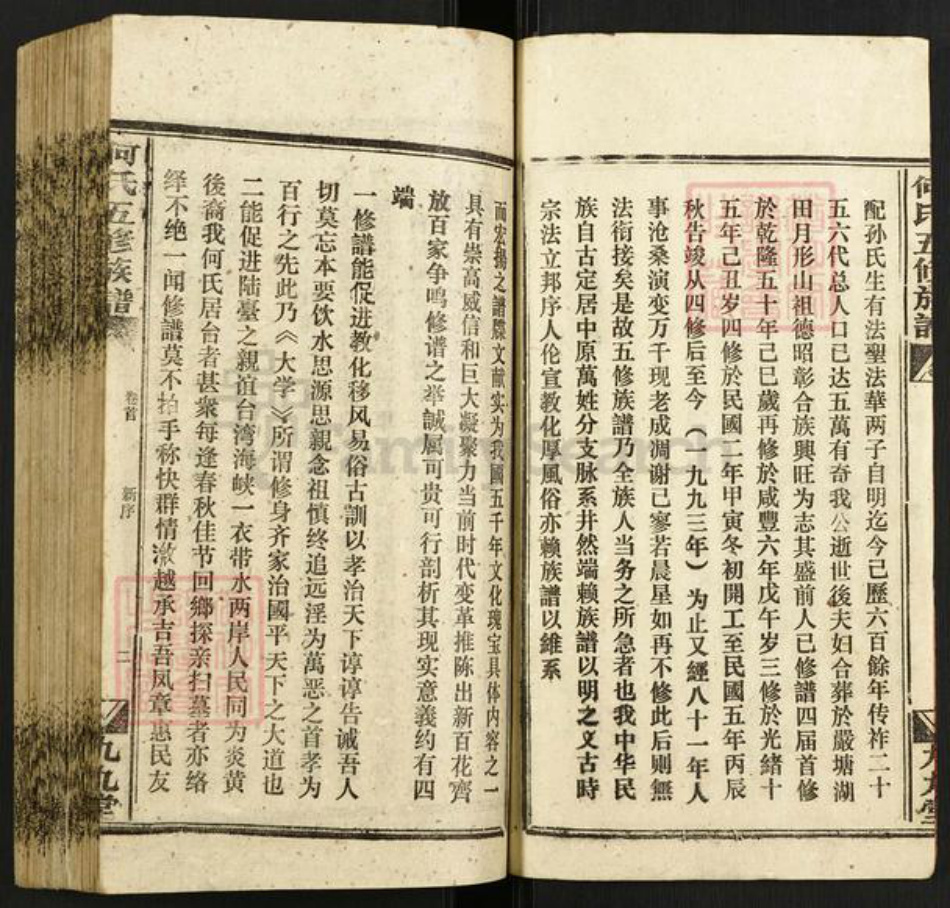 何氏五修族譜
配孙氏生有法聖法華两子自明迄今己歷六百餘年传祚二十
五六代总人口已达五萬有奇我公逝世後夫妇合葬於嚴塘湖
田月形山祖德昭彰合族興旺为志其盛前人已修譜四届首修
於乾隆五十年己巳歲再修於咸豐六年戊午岁三修於光緒十
五年己丑岁四修於民國二年甲寅冬初開工至民國五年丙辰
秋告竣从四修后至今（一九九三年）为止又經八十一年人
事沧桑演变万千现老成凋谢已寥若晨星如再不修此后则無
法衔接矣是故五修族谱乃全族人当务之所急者也我中华民
族自古定居中原萬姓分支脉系井然端赖族譜以明之文古時
宗法立邦序人伦宣教化厚風俗亦赖族譜以维系
九九堂
而宏揚之譜牒文献实为我國五千年文化瑰宝具体内容之一
具有崇高威信和巨大凝聚力当前时代变革推陈出新百花齊
放百家争鸣修谱之举誠属可贵可行剖析其现实意義约有四
端
一修譜能促进教化移风易俗古訓以孝治天下谆谆告诫吾人
切莫忘本要饮水思源思親念祖慎终追远淫为萬恶之首孝为
百行之先此乃《大学》所谓修身齐家治國平天下之大道也
二能促进陆臺之親谊台湾海峡一衣带水两岸人民同为炎黄
後裔我何氏居台者甚衆每逢春秋佳节回鄉探亲扫墓者亦络
绎不绝一闻修譜莫不拍手称快群情激越承吉吾凤章惠民友
何氏五修族譜
卷首
新序
二
九九堂